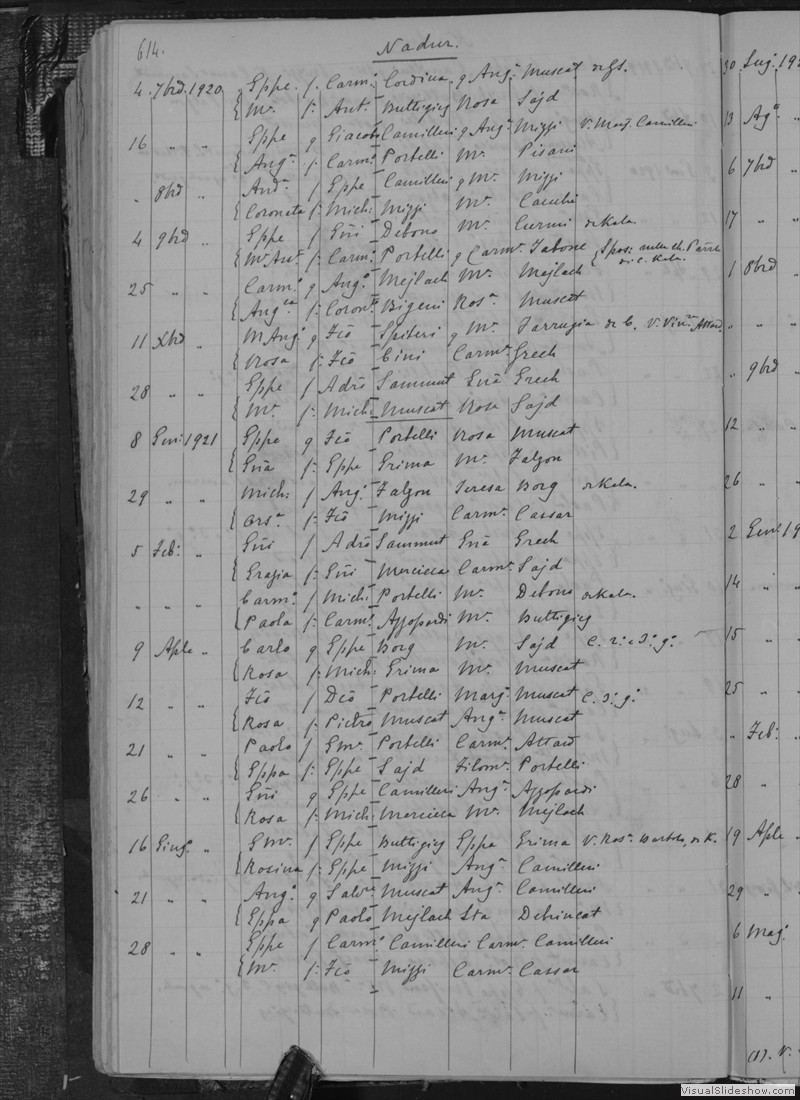 614.
Nadur.
4 7brė 1920 Gppe f. Carm. Cordina q Angª Muscat
Mª f. Ant. Buttigieg Rosa Sajd
16 " " Gppe q Giacobo Camilleri q Angª Mizzi V. Marj. Camilleri
Angª f. Carmº Portelli Mª Pisani
" 8brė Andª f Gppe Camilleri q Mª Mizzi
Coronata f. Mich: Mizzi Mª
4 9brė " Gppe f Gio Debono Mª Curmi di Kala
M. Antª f. Carm. Portelli q Carmª Tabone
25 " " Carmº q Angº Mejlach Mª Mejlach
Angca f. Coronº Bigeni Rosª Muscat
11 Xbrė " M Angº q Fcō Spiteri q Mª Farrugia
Rosa f. Fcō Cini Carmª Grech
28 " " Gppe f Adrō Sammut Gnā Grech
Mª f. Mich: Muscat Rosa Sajd
8 Gen: 1921 Gppe q Fcō Portelli Rosa Muscat
Gnā f. Gppe Grima Mª Falzon
29 " " Mich: f Angº Falzon Teresa Borg di Kala.
Orsª f. Fcō Mizzi Carmª Cassar
5 Feb: " Gio f Adrō Sammut Gnā Grech
Grazia f. Gio Mercieca Carmª Sajd
" " " Carmº f Mich: Portelli Mª Debono di Kala.
Paola f. Carmº Azzopardi Mª Buttigieg
9 Aple " Carlo q Gppe Borg Mª Sajd C. 2º e 3º gº
Rosa f. Mich: Grima Mª Muscat
12 " " Fcō f Dcō Portelli Margª Muscat C. 3º gº
Rosa f. Pietrō Muscat Angª Muscat
21 " " Paolo f Emº Portelli Carmª Attard
Gppa f. Gppe Sajd Filomª Portelli
26 " " Gio q Gppe Camilleri Angª Azzopardi
Rosa f. Mich: Mercieca Mª Mejlach
16 Giugº " Emº f Gppe Buttigieg Gppa Grima
Rosina f. Gppe Mizzi Angª Camilleri
21 " " Angº q Salvº Muscat Angª Camilleri
Gppa q Paolō Mejlach Debrincat
28 " " Gppe f Carmº Camilleri Carmª Camilleri
Mª f. Fcō Mizzi Carmª Cassar
30 Lug. 192
13 Agº "
6 7brė "
17 " "
1 8brė "
" " "
" 9brė "
12 " "
26 " "
2 Genº 19
14 " "
15 " "
25 " "
" Feb: "
28 "
19 Aple "
29 "
6 Magº
11 "
(1). V.
VisualSlideshow.com